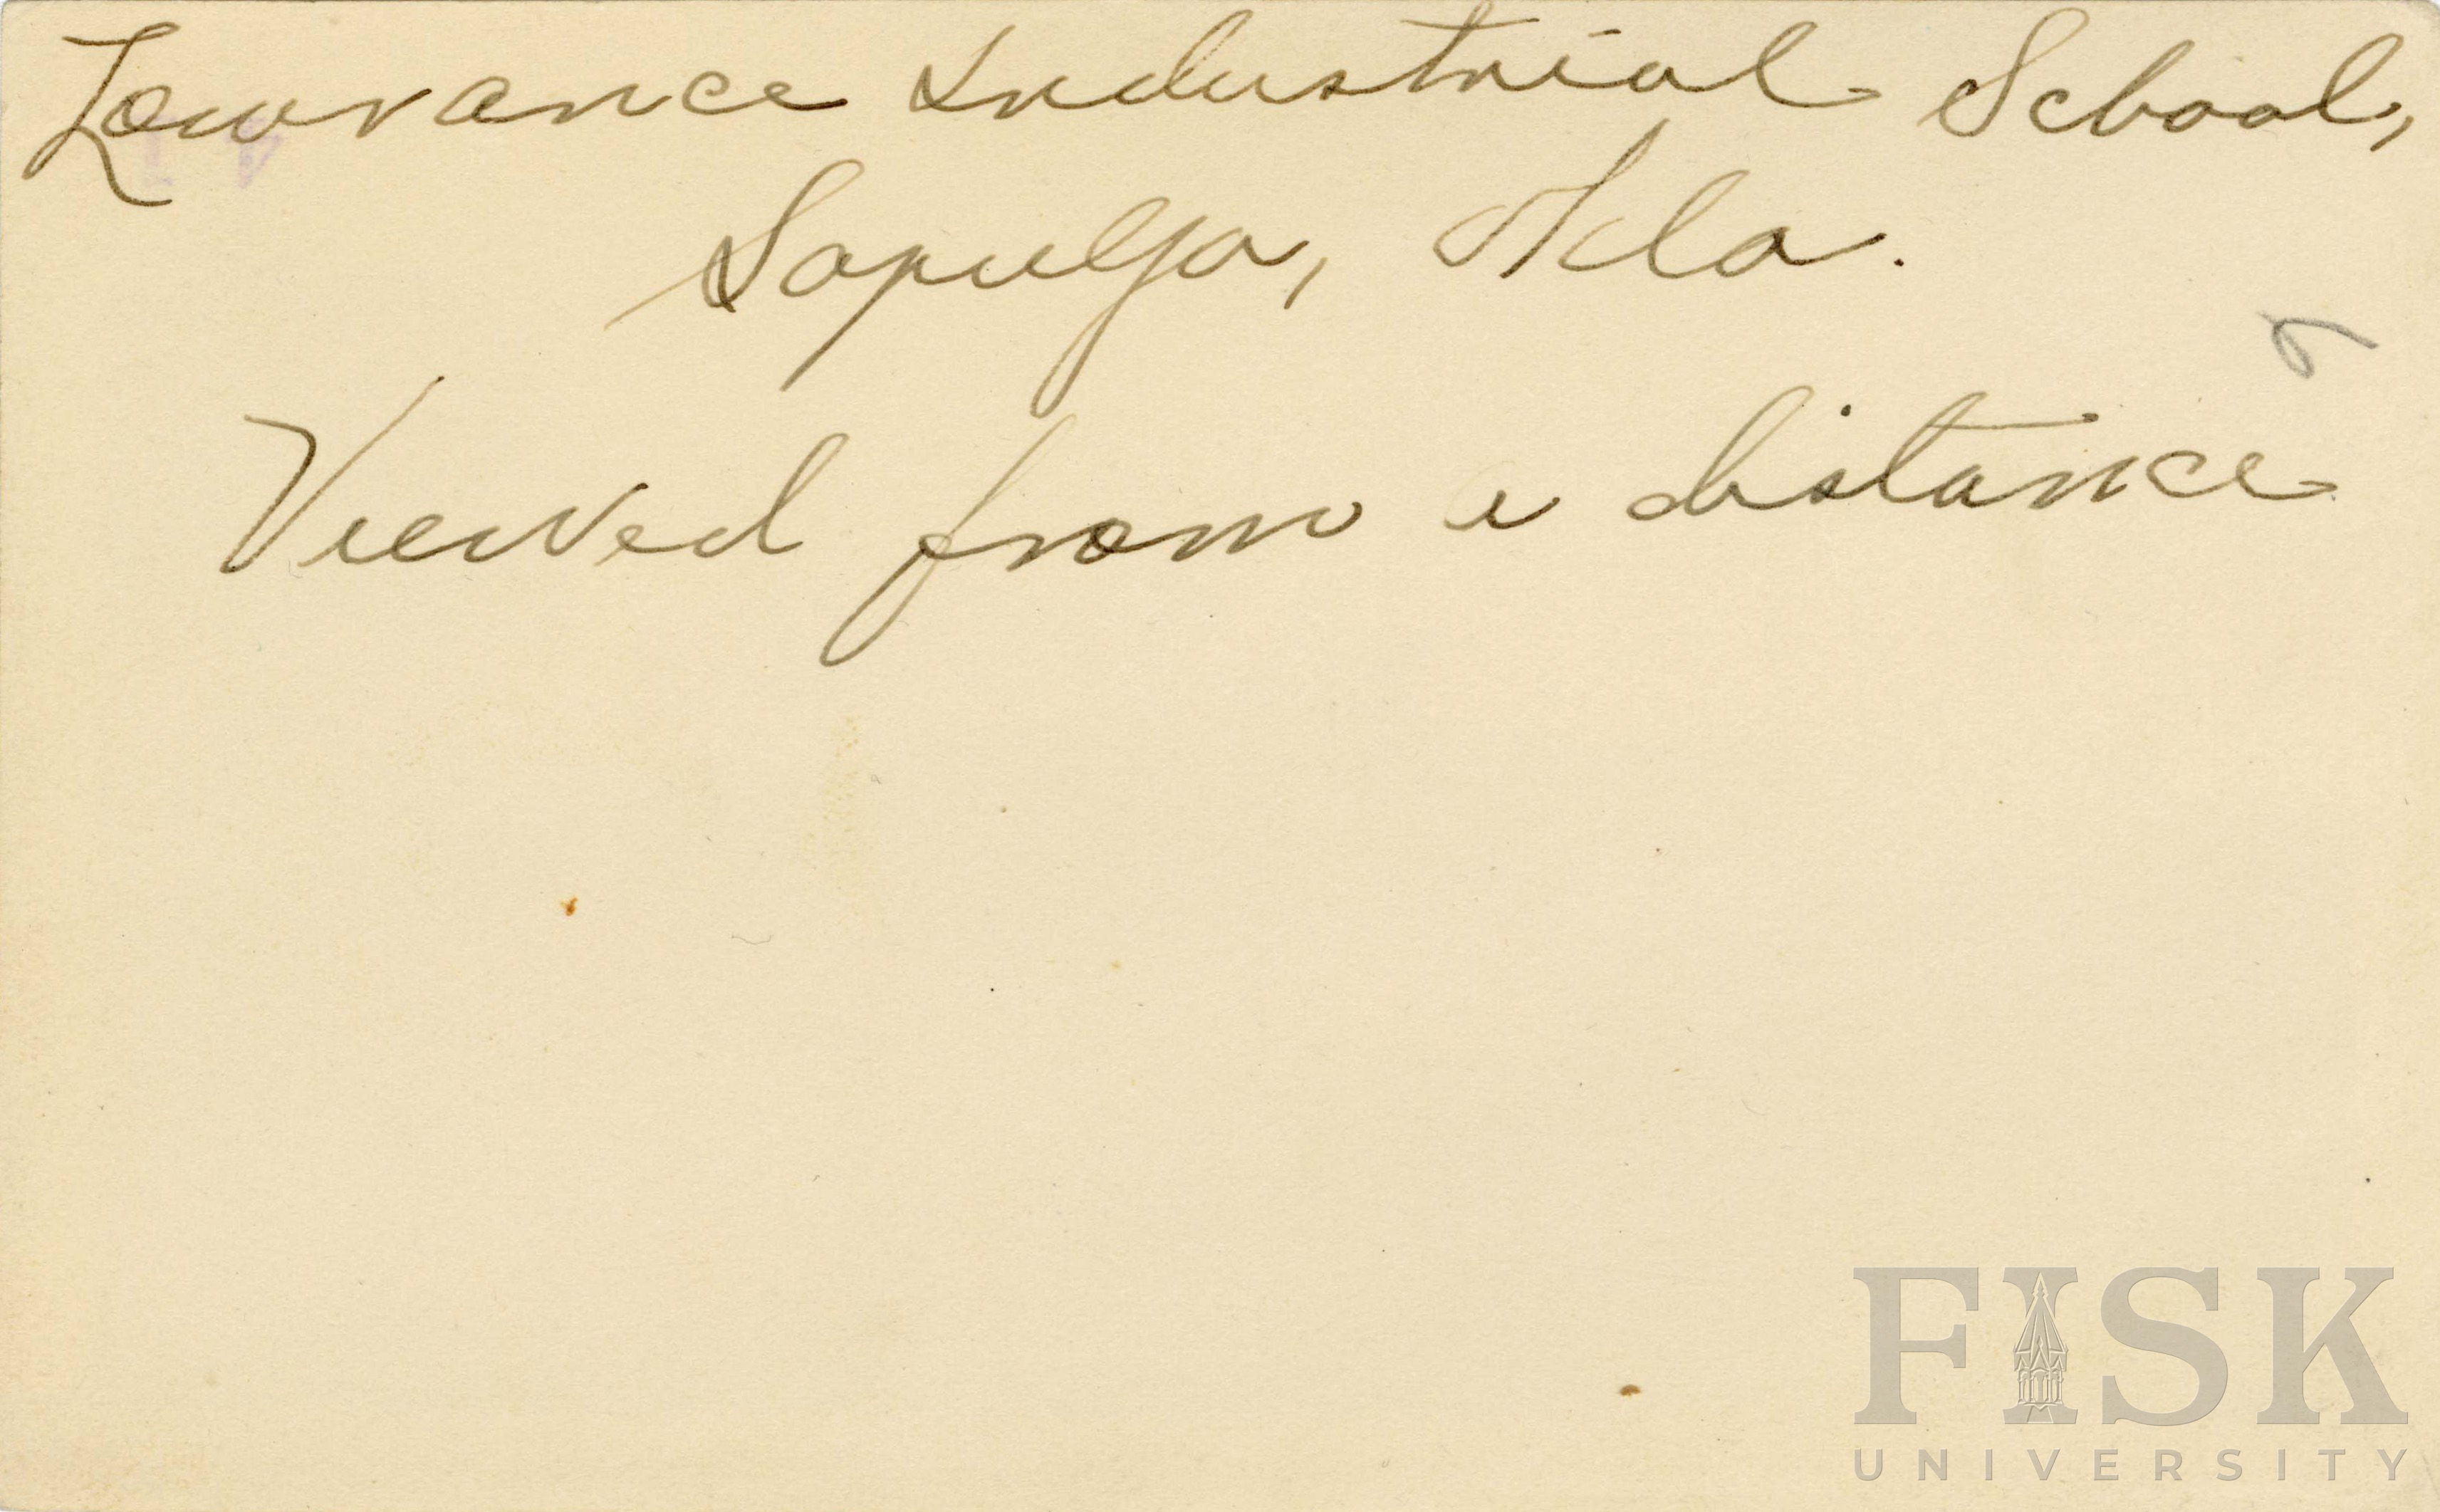 Lowrance Industrial School,
Sapulpa, Okla.
Viewed from a distance
FISK
UNIVERSITY